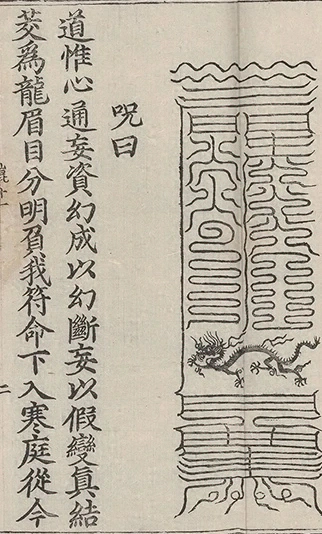 咒曰
道惟心通妄資幻成以幻斷妄以假變真結
茭為龍眉目分明負我符命下入寒庭從今